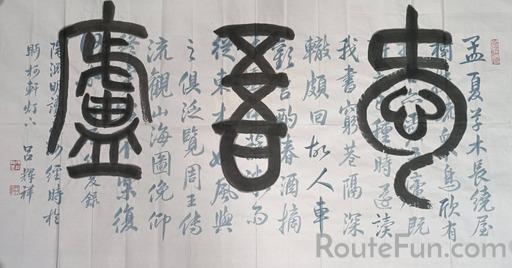 愛吾廬
孟夏草木長繞屋
樹扶疏眾鳥欣有
吾廬既
種時還讀
我書窮巷隔深
轍頗回故人車
歡言酌春酒摘
從東來好風與
之俱泛覽周王傳
流觀山海圖俛仰
樂復
錄
陶淵明讀山海經時於
灯下 呂輝祥
RouteFun.com